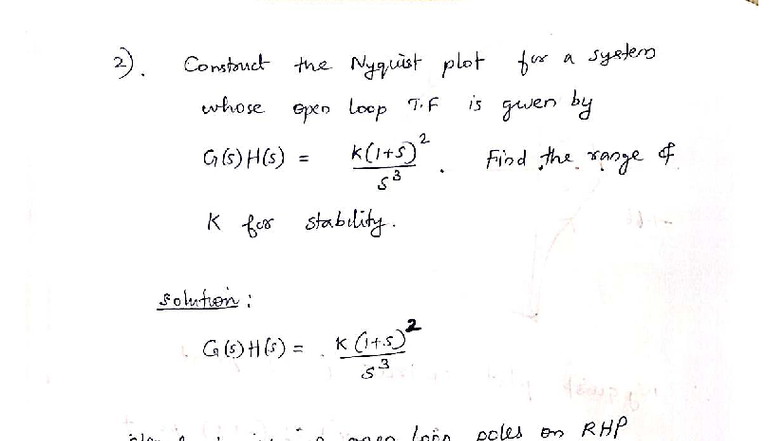 2). Construct the Nyquist plot for a system
whose open loop T.F is given by
G(s)H(s) = K(1+S)² / S³ . Find the range of
K for stability.
Solution :
G(s)H(s) = K(1+S)² / S³
open loop poles on RHP